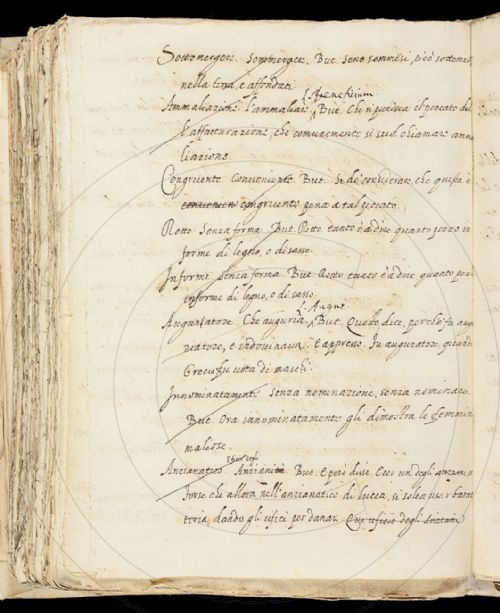 Sottomergere. Sommergere. But. Sono sommersi, cioè sottomer
nella terra, e affondati.
Ammaliazione. l'ammaliare. Veneficium But. Che si punisca il peccato del
l'affatturazione, che comunemente si suol chiamare amma
liazione.
Congruente. Conveniente. But. Si dè considerare, che questa è
conveniente congruente pena a tal peccato.
Rotto. Senza forma. But. Rotto tanto è a dire quanto pezzo in
forme di legno, o di sasso.
Informe. Senza forma. But. Rotto tanto è a dire quanto pez
informe di legno, o di sasso.
Auguriatore. Che auguria. But. Questo dice, perchè fu augu
riatore, e indovinava. E appresso. Fu auguratore, quando
Grecia fu vota di maschi.
Innominatamente. Senza nominazione, senza nominare.
But. Ora innominatamente gli dimostra le femmine
maliose.
Anzianatico. But. E però disse. Ecco un degli anziani, e
forse che allora nell'anzianatico di Lucca, si solea usar barat
teria, dando gli ufici per danari.